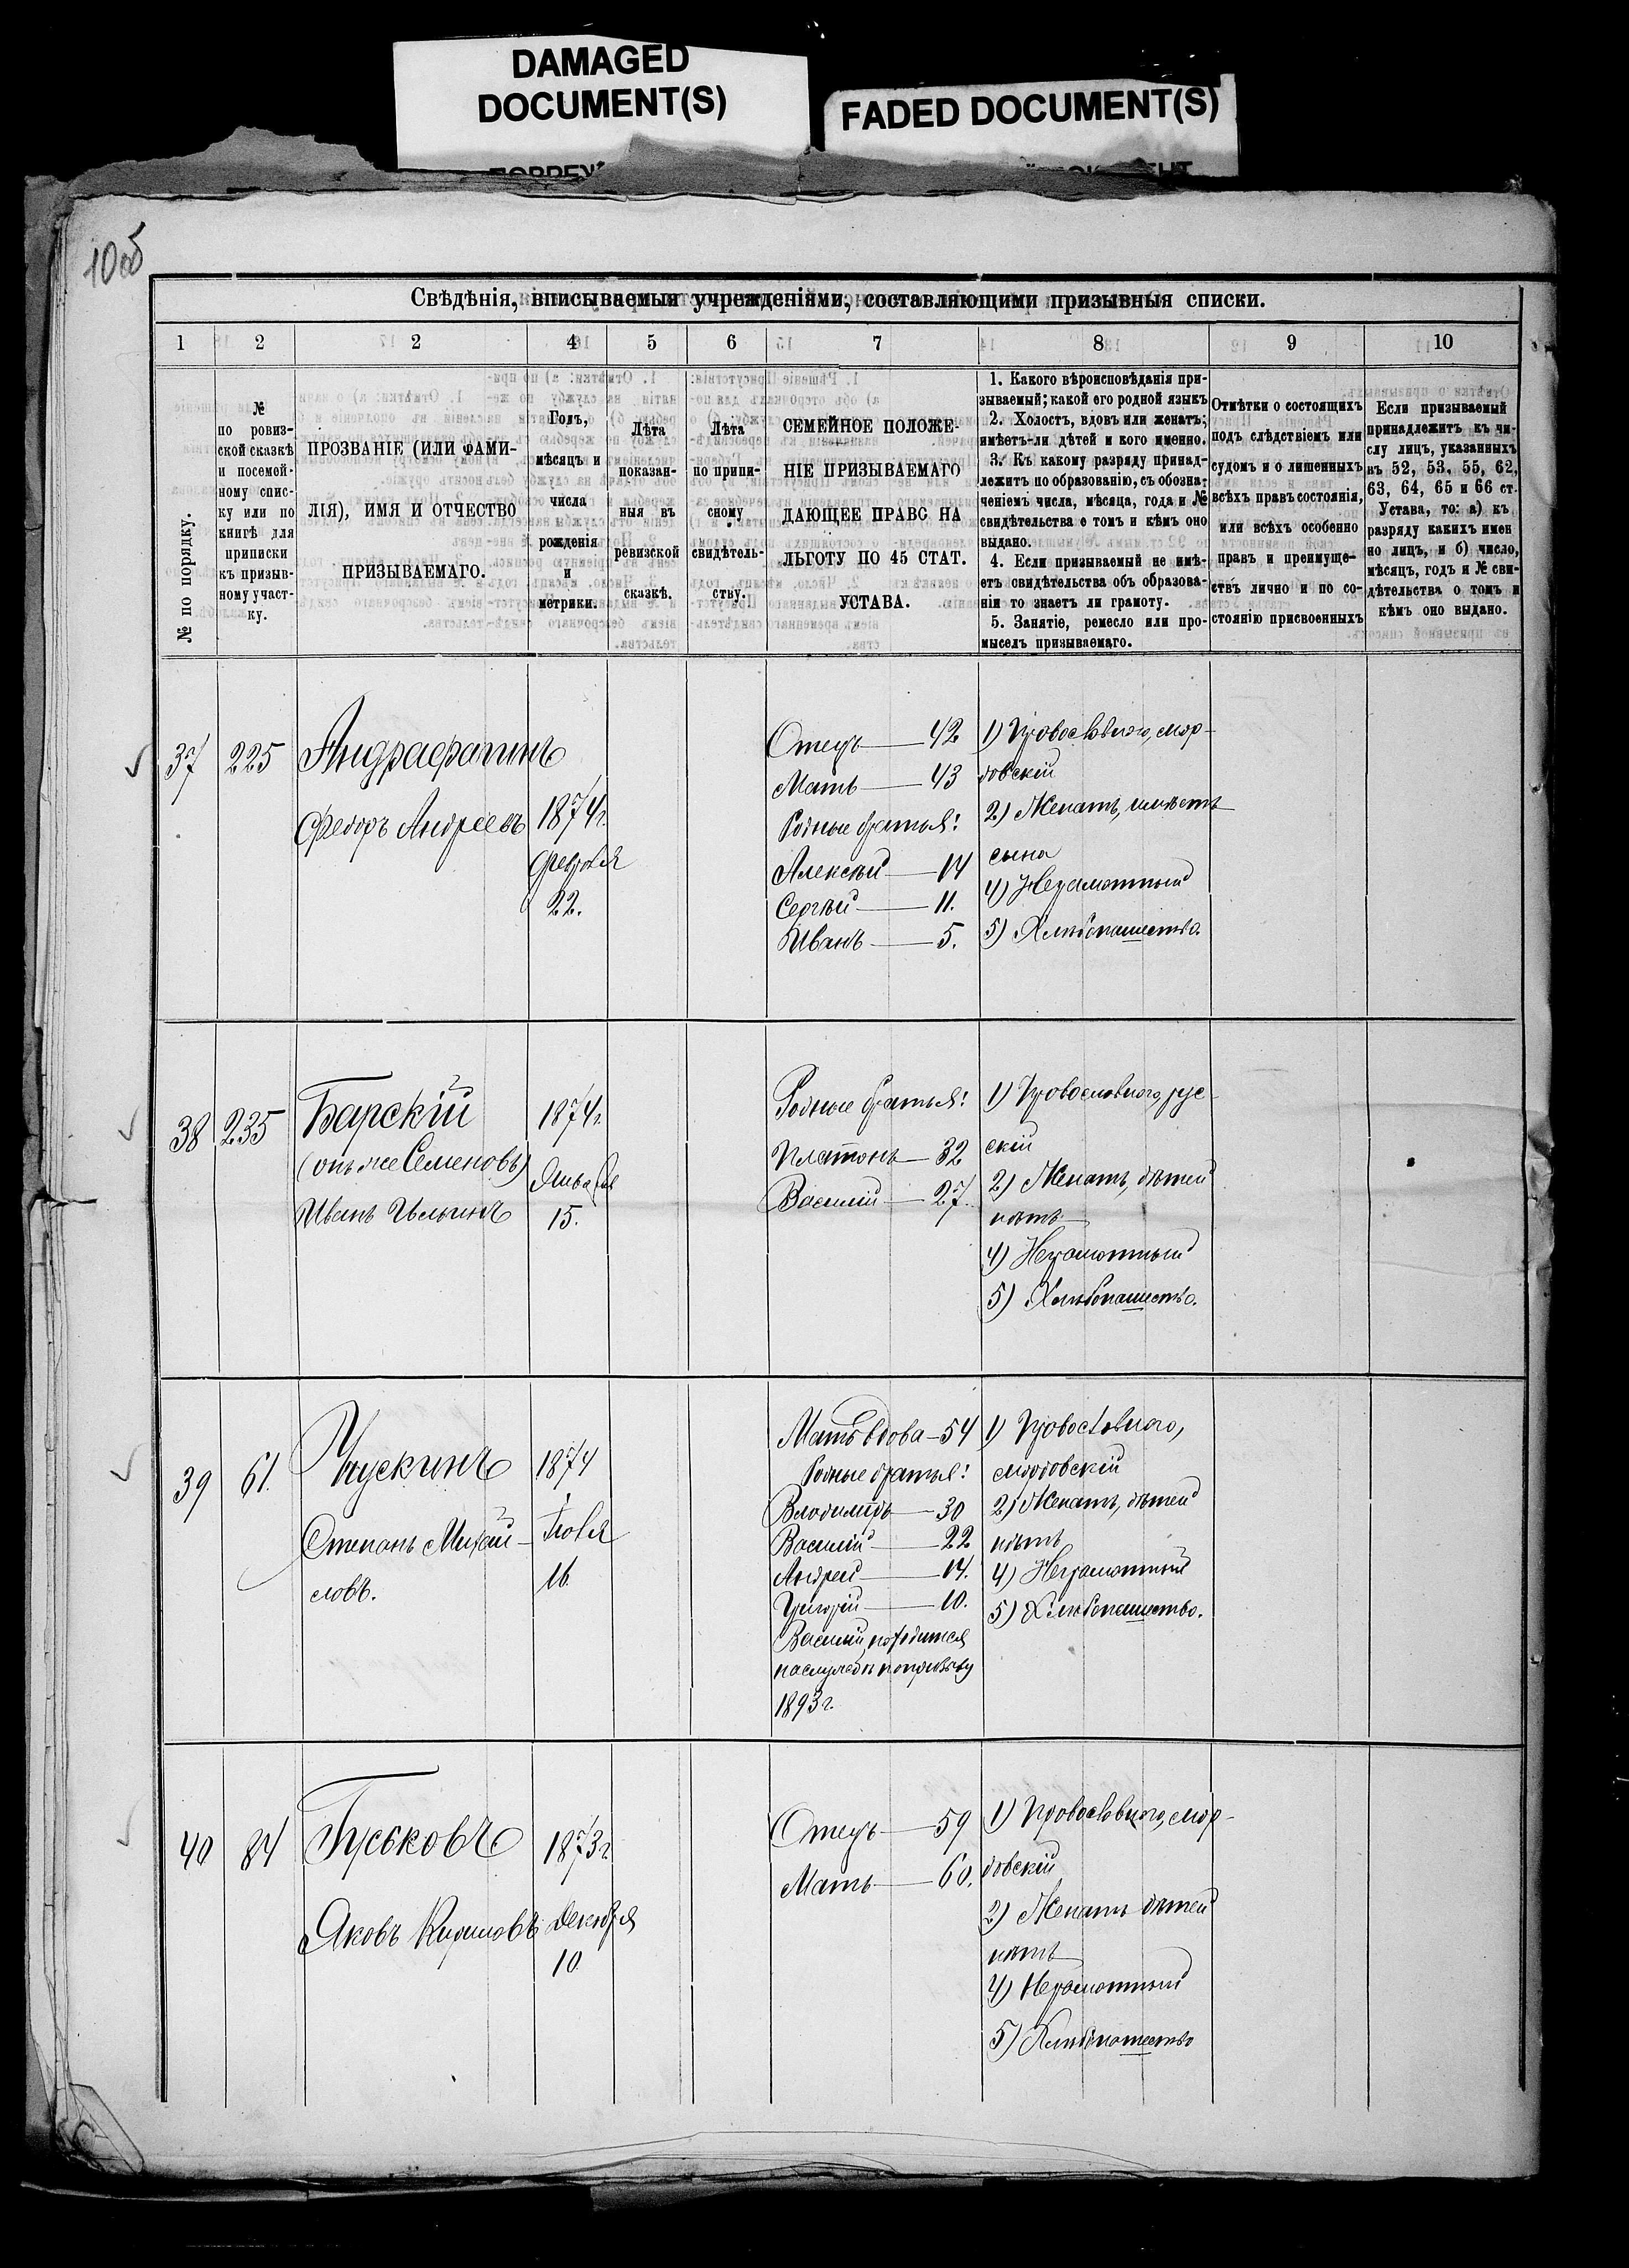 DAMAGED
DOCUMENT(S)
FADED DOCUMENT(S)
10об
Свѣдѣнія, вписываемыя учрежденіями, составляющими призывныя списки.
1 2 2 4 5 6 7 8 9 10
№ по порядку.
№
по ровиз-
ской сказкѣ
и посемей-
ному спис-
ку или по
книгѣ для
приписки
къ призыв-
ному участ-
ку.
ПРОЗВАНІЕ (ИЛИ ФАМИ-
ЛІЯ), ИМЯ И ОТЧЕСТВО
ПРИЗЫВАЕМАГО.
Годъ,
мѣсяцъ и
числа
рожденія
и
метрики.
Лѣта
показан-
ныя въ
ревизской
сказкѣ.
Лѣта
по припи-
сному
свидѣтель-
ству.
СЕМЕЙНОЕ ПОЛОЖЕ-
НІЕ ПРИЗЫВАЕМАГО
ДАЮЩЕЕ ПРАВС НА
ЛЬГОТУ ПО 45 СТАТ.
УСТАВА.
1. Какого вѣроисповѣданія при-
зываемый; какой его родной языкъ
2. Холостъ, вдовъ или женатъ;
имѣетъ-ли дѣтей и кого именно.
3. Къ какому разряду принад-
лежитъ по образованію, съ обозна-
ченіемъ числа, мѣсяца, года и №
свидѣтельства о томъ и кѣмъ оно
выдано.
4. Если призываемый не имѣ-
етъ свидѣтельства объ образова-
ніи то знаетъ ли грамоту.
5. Занятіе, ремесло или про-
мыселъ призываемаго.
Отмѣтки о состоящихъ
подъ слѣдствіемъ или
судомъ и о лишенныхъ
всѣхъ правъ состоянія,
или всѣхъ особенно
правъ и преимуще-
ствъ лично и по со-
стоянію присвоенныхъ
Если призываемый
принадлежитъ къ чи-
слу лицъ, указанныхъ
въ 52, 53, 55, 62,
63, 64, 65 и 66 ст.
Устава, то: а) къ
разряду какихъ имен
но лицъ, и б) число,
мѣсяцъ, годъ и № сви-
дѣтельства о томъ и
кѣмъ оно выдано.
37 225
Федоръ Андреевъ
1874г.
Февраля
22.
Отецъ — 42
Мать — 43
Родные братья:
Алексѣй — 14
Сергѣй — 11.
Иванъ — 5.
1) Православнаго, мор-
довскій
2) Женатъ, имѣетъ
сына
4) Неграмотный
5) Хлѣбопашество.
38 235
Барскій
(онъ же Семеновъ)
Иванъ Ильинъ
1874г.
Января
15.
Родные братья:
Платонъ — 32
Василій — 27.
1) Православнаго, рус-
скій
2) Женатъ, дѣтей
нѣтъ
4) Неграмотный
5) Хлѣбопашество.
39 61.
Степанъ Михай-
ловъ.
1874
Іюля
16.
Мать вдова — 54
Родные братья:
Владиміръ — 30
Василій — 22
Андрей — 14.
Григорій — 10.
Василій находится
на службѣ по призыву
1893г.
1) Православнаго,
мордовскій
2) Женатъ, дѣтей
нѣтъ
4) Неграмотный
5) Хлѣбопашество.
40 84
Гуськовъ
Яковъ Кириловъ
1873г
Декабря
10
Отецъ — 59
Мать — 60.
1) Православнаго, мор-
довскій
2) Женатъ дѣтей
нѣтъ
4) Неграмотный
5) Хлѣбопашество